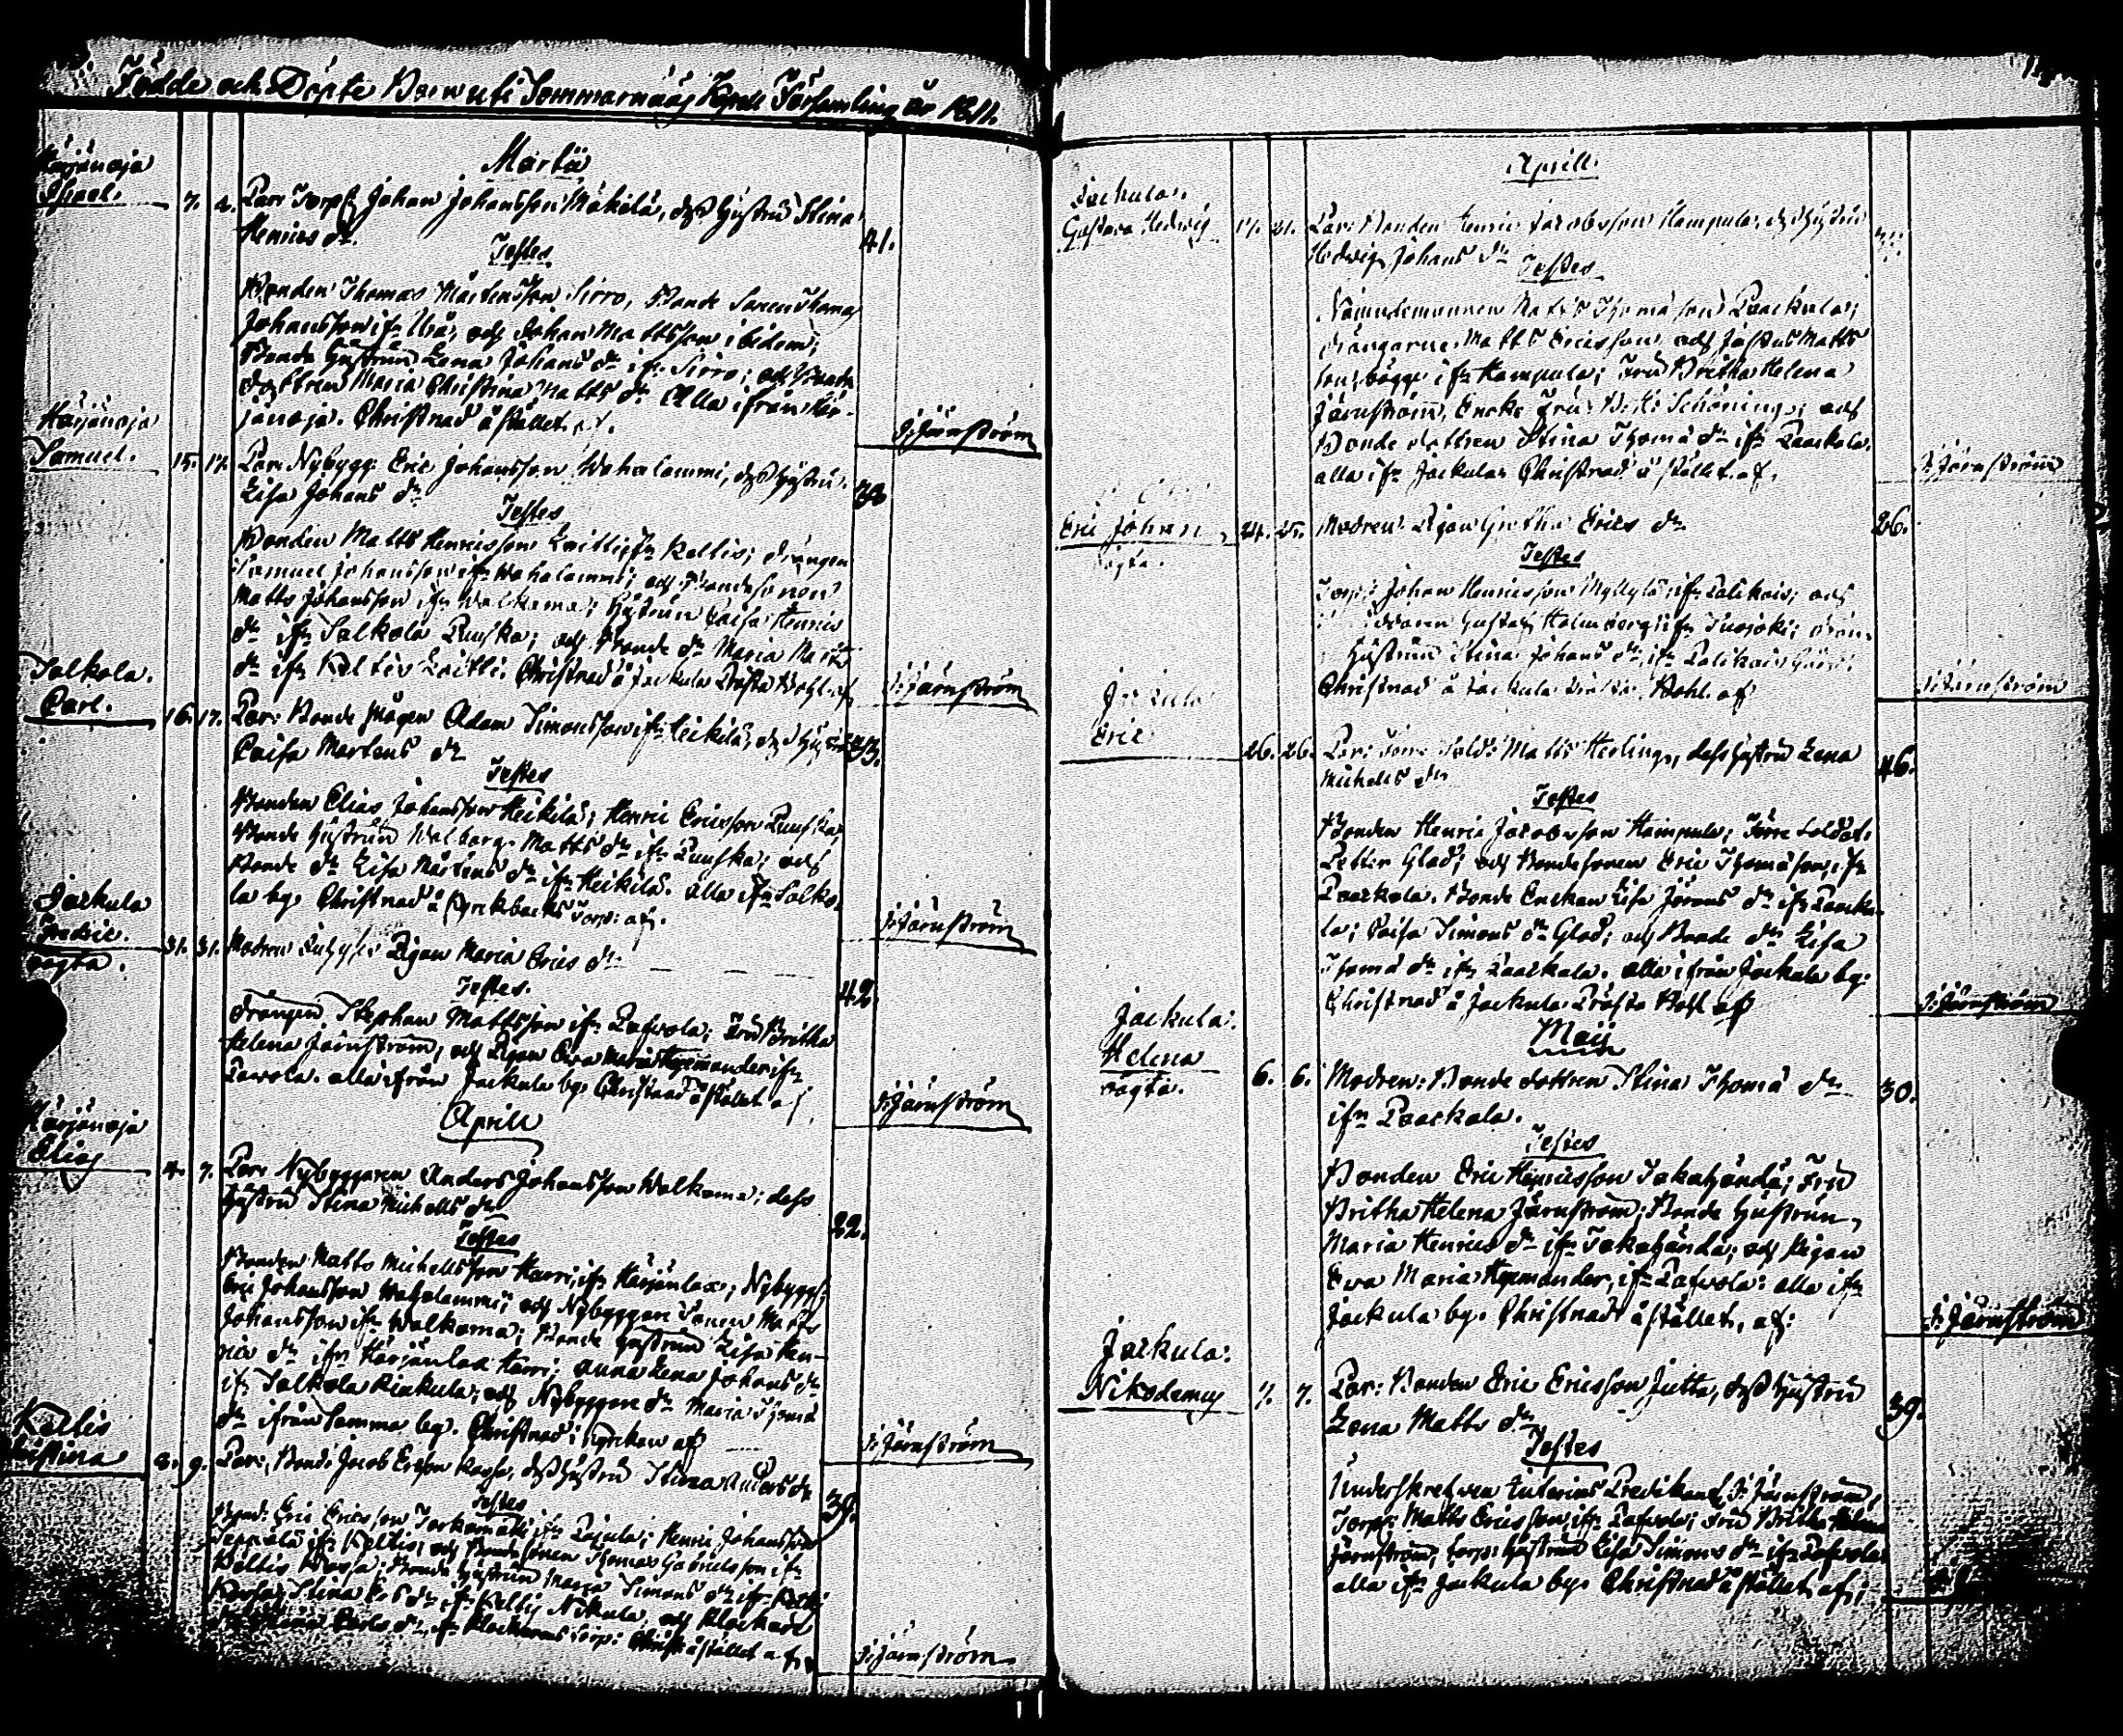 Födde och Döpte Barn uti Sommarnäs Capell Församling år 1811.
Martii
Härjänoja
Israel. 7. 2. Par: Torp: Johan Johansson Mäkilä, dess Hustru Stina
Henrics dr. 41.
Testes
Bonden Thomas Mårtensson Sirro, Bonde Sonen Thomas
Johansson ifn och Johan Mattsson ibidem;
Bonde Hustrun Lena Johans dr ifn Sirro; och Bonde
dottren Maria Christina Matts dr Alla ifrån Här-
jänoja. Christnad å stället af. J: Järnström
Härjänoja
Samuel. 15. 17. Par: Nybygg: Eric Johansson Wahalammi, dess Hustru
Lisa Johans dr 32
Testes
Bonden Matts Henricsson Laitti ifn Keltis; drängen
Samuel Johansson ifn Wahalammi; och Bonde sonen
Matts Johansson ifn Walkama; Hustrun Caisa Henrics
dr ifn Salkola Puuska; och Bonde dr Maria Matts
dr ifn Keltis Laitti. Christnad å Jackula Prästa Bohl. af J: Järnström
Salkola.
Carl. 16. 17. Par: Bonde Mågen Adam Simonsson ifn Heikilä, dess Hustru 33.
Caisa Martens dr
Testes
Bonden Elias Johansson Heikilä; Henric Ericsson Puuska,
Bonde Hustrun Walborg Matts dr ifn Puuska; och
Bonde dr Lisa Mårtens dr ifn Heikilä. alla ifn Salko-
la by. Christnad å Kyrckbacks Torp: af. J: Järnström
Jackula
Fredric.
oägta. 31. 31. Modren Pigan Maria Erics dr 42.
Testes.
drängen Stephan Mattsson ifn Pafvola; Fru Britha
Helena Järnström, och Pigan Eva Maria ifn
Pavola. alla ifrån Jackula by. Christnad å stället af J: Järnström
Aprill
Härjänoja
Elias 4. 7. Par: Nybyggaren Anders Johansson Walkama; dess
Hustru Stina Michells dr 22.
Testes
Bonden Matts Michellsson Harri, ifn Härjänlax; Nybygg:
Eric Johansson Wahalammi; och Nybyggare Sonen Matts
Johansson ifn Walkama; Bonde Hustrun Lisa Hen-
rics dr ifn Härjänlax Harri; Anna Lena Johans dr
ifn Salkola Kiakula; och Nybyggare dr Maria Thomæ
dr ifrån Samma by. Christnad i Kyrckan af J: Järnström
Keltis
Christina 8. 9. Par: Bond: Jacob Ericson Kassa, dess Hustru Stina Anders dr 39.
Testes
Bond: Eric Ericsson ifn Pajula; Henric Johansson
Seppälä ifn Keltis; och Bonde Sonen Thomas Gabrielsson ifn
Keltis Kassa; Bonde Hustrun Maria Simons dr ifn Keltis
Kassa; Stina dr ifn Keltis Nikula, och Klockare
dr ifn Klockarens Torp: Christ: å stället af. J: Järnström
Aprill
Jackula.
Gustava Hedwig 17. 21. Par: Bonden Henric Jacobsson Hampula; dess Hustru
Hedwig Johans dr
Testes
Nämndemannen Matts Thomæson Paackola;
drängarne Matts Ericsson och Matts
son, bägge ifn Hampula; Fru Britha Helena
Järnström, Encke Fru Schöning; och
Bonde dottren Stina Thomæ dr ifn Paackola.
alla ifn Jackula. Christnad å stället af. J: Järnström
Eric Johan,
oägta. 24. 25. Modren: Pigan Gretha Erics dr 26.
Testes
Torp: Johan Henricsson Myllylä ifn och
Gustaf Holmberg ifn
Hustrun Stina Johans dr ifn
Christnad å Jackula Prästa Bohl. af J: Järnström
Jackula
Eric 26. 26. Par: Förre Sold: Matts Herling, dess Hustru Lena
Michells dr 46.
Testes
Bonden Henric Jacobsson Hampula; Förre Soldat:
Petter Glad; och Bonde sonen Eric Thomæson, ifn
Paackola. Bonde Enckan Lisa Jörans dr ifn Paacko-
la; Caisa Simons dr Glad; och Bonde dr Lisa
Thomæ dr ifn Paackola. alla ifrån Jackula by.
Christnad å Jackula Prästa Bohl af J: Järnström
Maij
Jackula.
Helena
oägta. 6. 6. Modren: Bonde dottren Stina Thomæ dr 30.
ifn Paackola.
Testes
Bonden Eric Henricsson Takahändä; Fru
Britha Helena Järnström; Bonde Hustrun,
Maria Henrics dr ifn Takahändä; och Pigan
Eva Maria ifn Pafvola: alla ifn
Jackula by. Christnad å stället, af: J: Järnström
Jackula.
Nikodemus 7. 7. Par: Bonden Eric Ericsson Jutta, dess Hustru
Lena Matts dr 39.
Testes
Underskrefven Interims Predikant J: Järnström,
Torp: Matts Ericsson ifn Pafvola; Fru Britha Helena
Järnström, torp: Hustrun Lisa Simons dr ifn Pafvola
alla ifn Jackula by. Christnad å stället af;